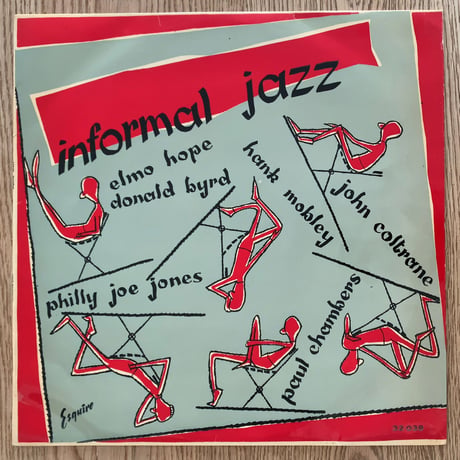 informal jazz
elmo hope
donald byrd
hank mobley
john coltrane
philly joe jones
paul chambers
Esquire